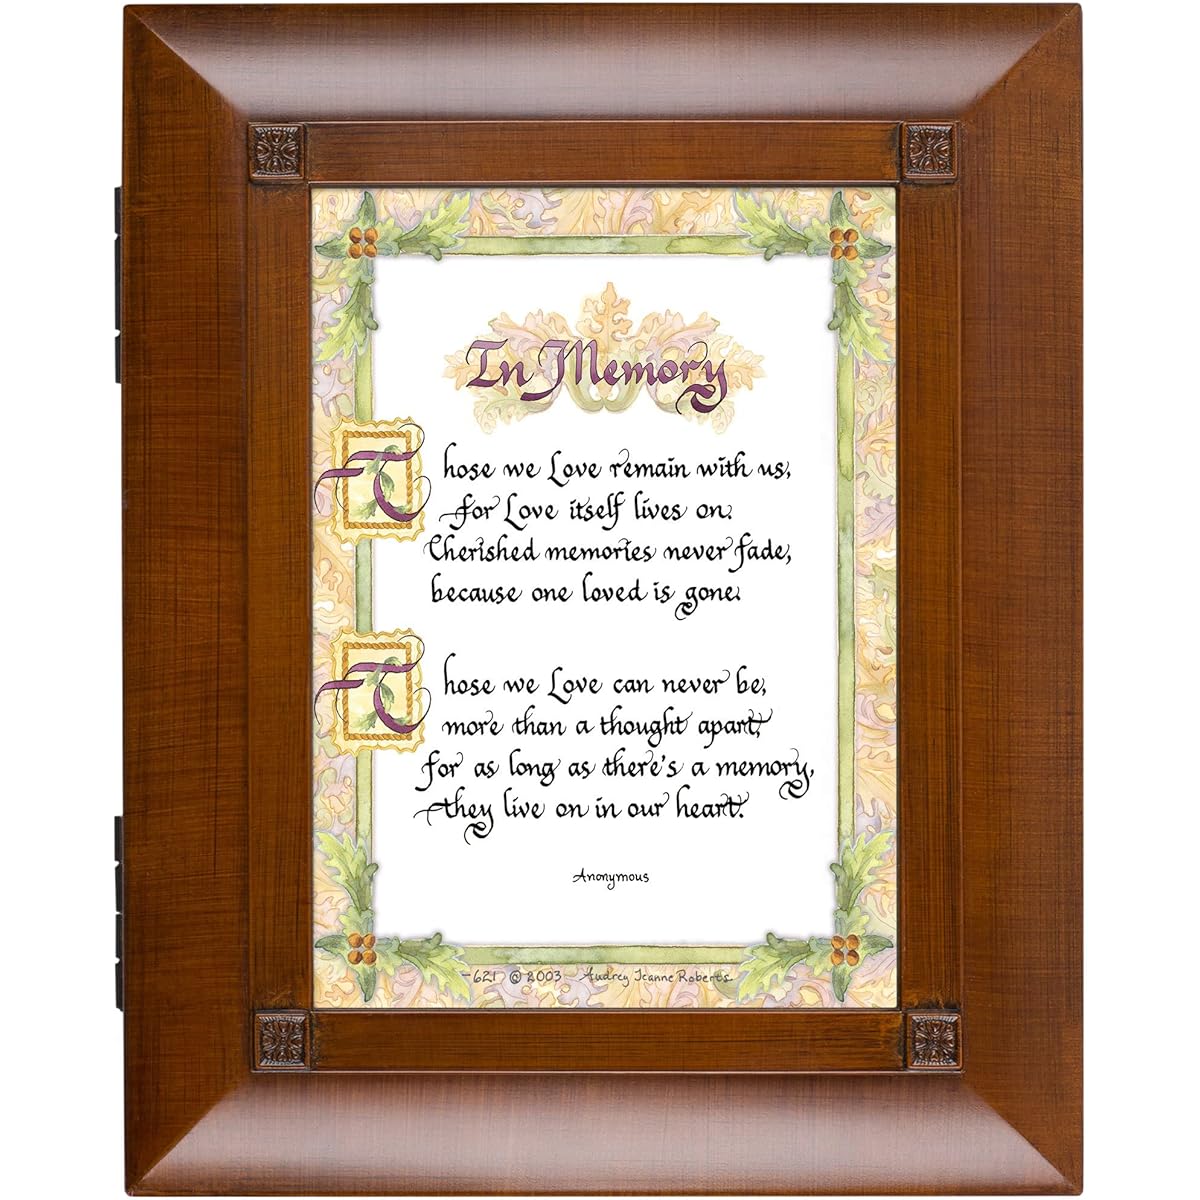 In Memory
Those we Love remain with us,
for Love itself lives on.
Cherished memories never fade,
because one loved is gone.
Those we Love can never be,
more than a thought apart,
for as long as there's a memory,
they live on in our heart.
Anonymous
-621 © 2003 Audrey Jeanne Roberts